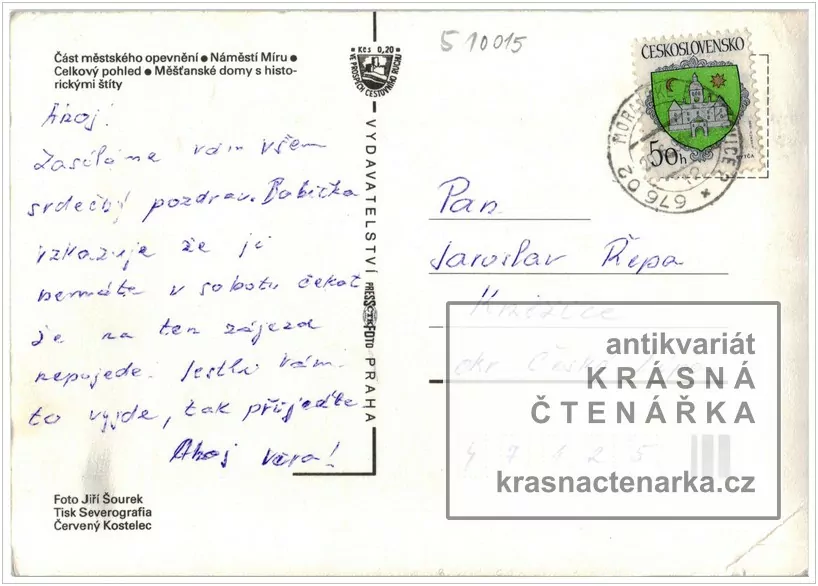 Část městského opevnění ● Náměstí Míru ●
Celkový pohled ● Měšťanské domy s histo-
rickými štíty
Ahoj!
Zasíláme vám všem
srdečný pozdrav. Babička
vzkazuje že ji
nemáte v sobotu čekat
že na ten zájezd
nepojede. Jestli vám
to vyjde, tak přijeďte
Ahoj Věra!
Foto Jiří Šourek
Tisk Severografia
Červený Kostelec
Kčs 0,20
VE PROSPĚCH CESTOVNÍHO RUCHU
VYDAVATELSTVÍ PRESSFOTO PRAHA
510015
ČESKOSLOVENSKO
50 h
676 02
Pan
Jaroslav Řepa
okr Česká
47125
antikvariát
KRÁSNÁ
ČTENÁŘKA
krasnactenarka.cz